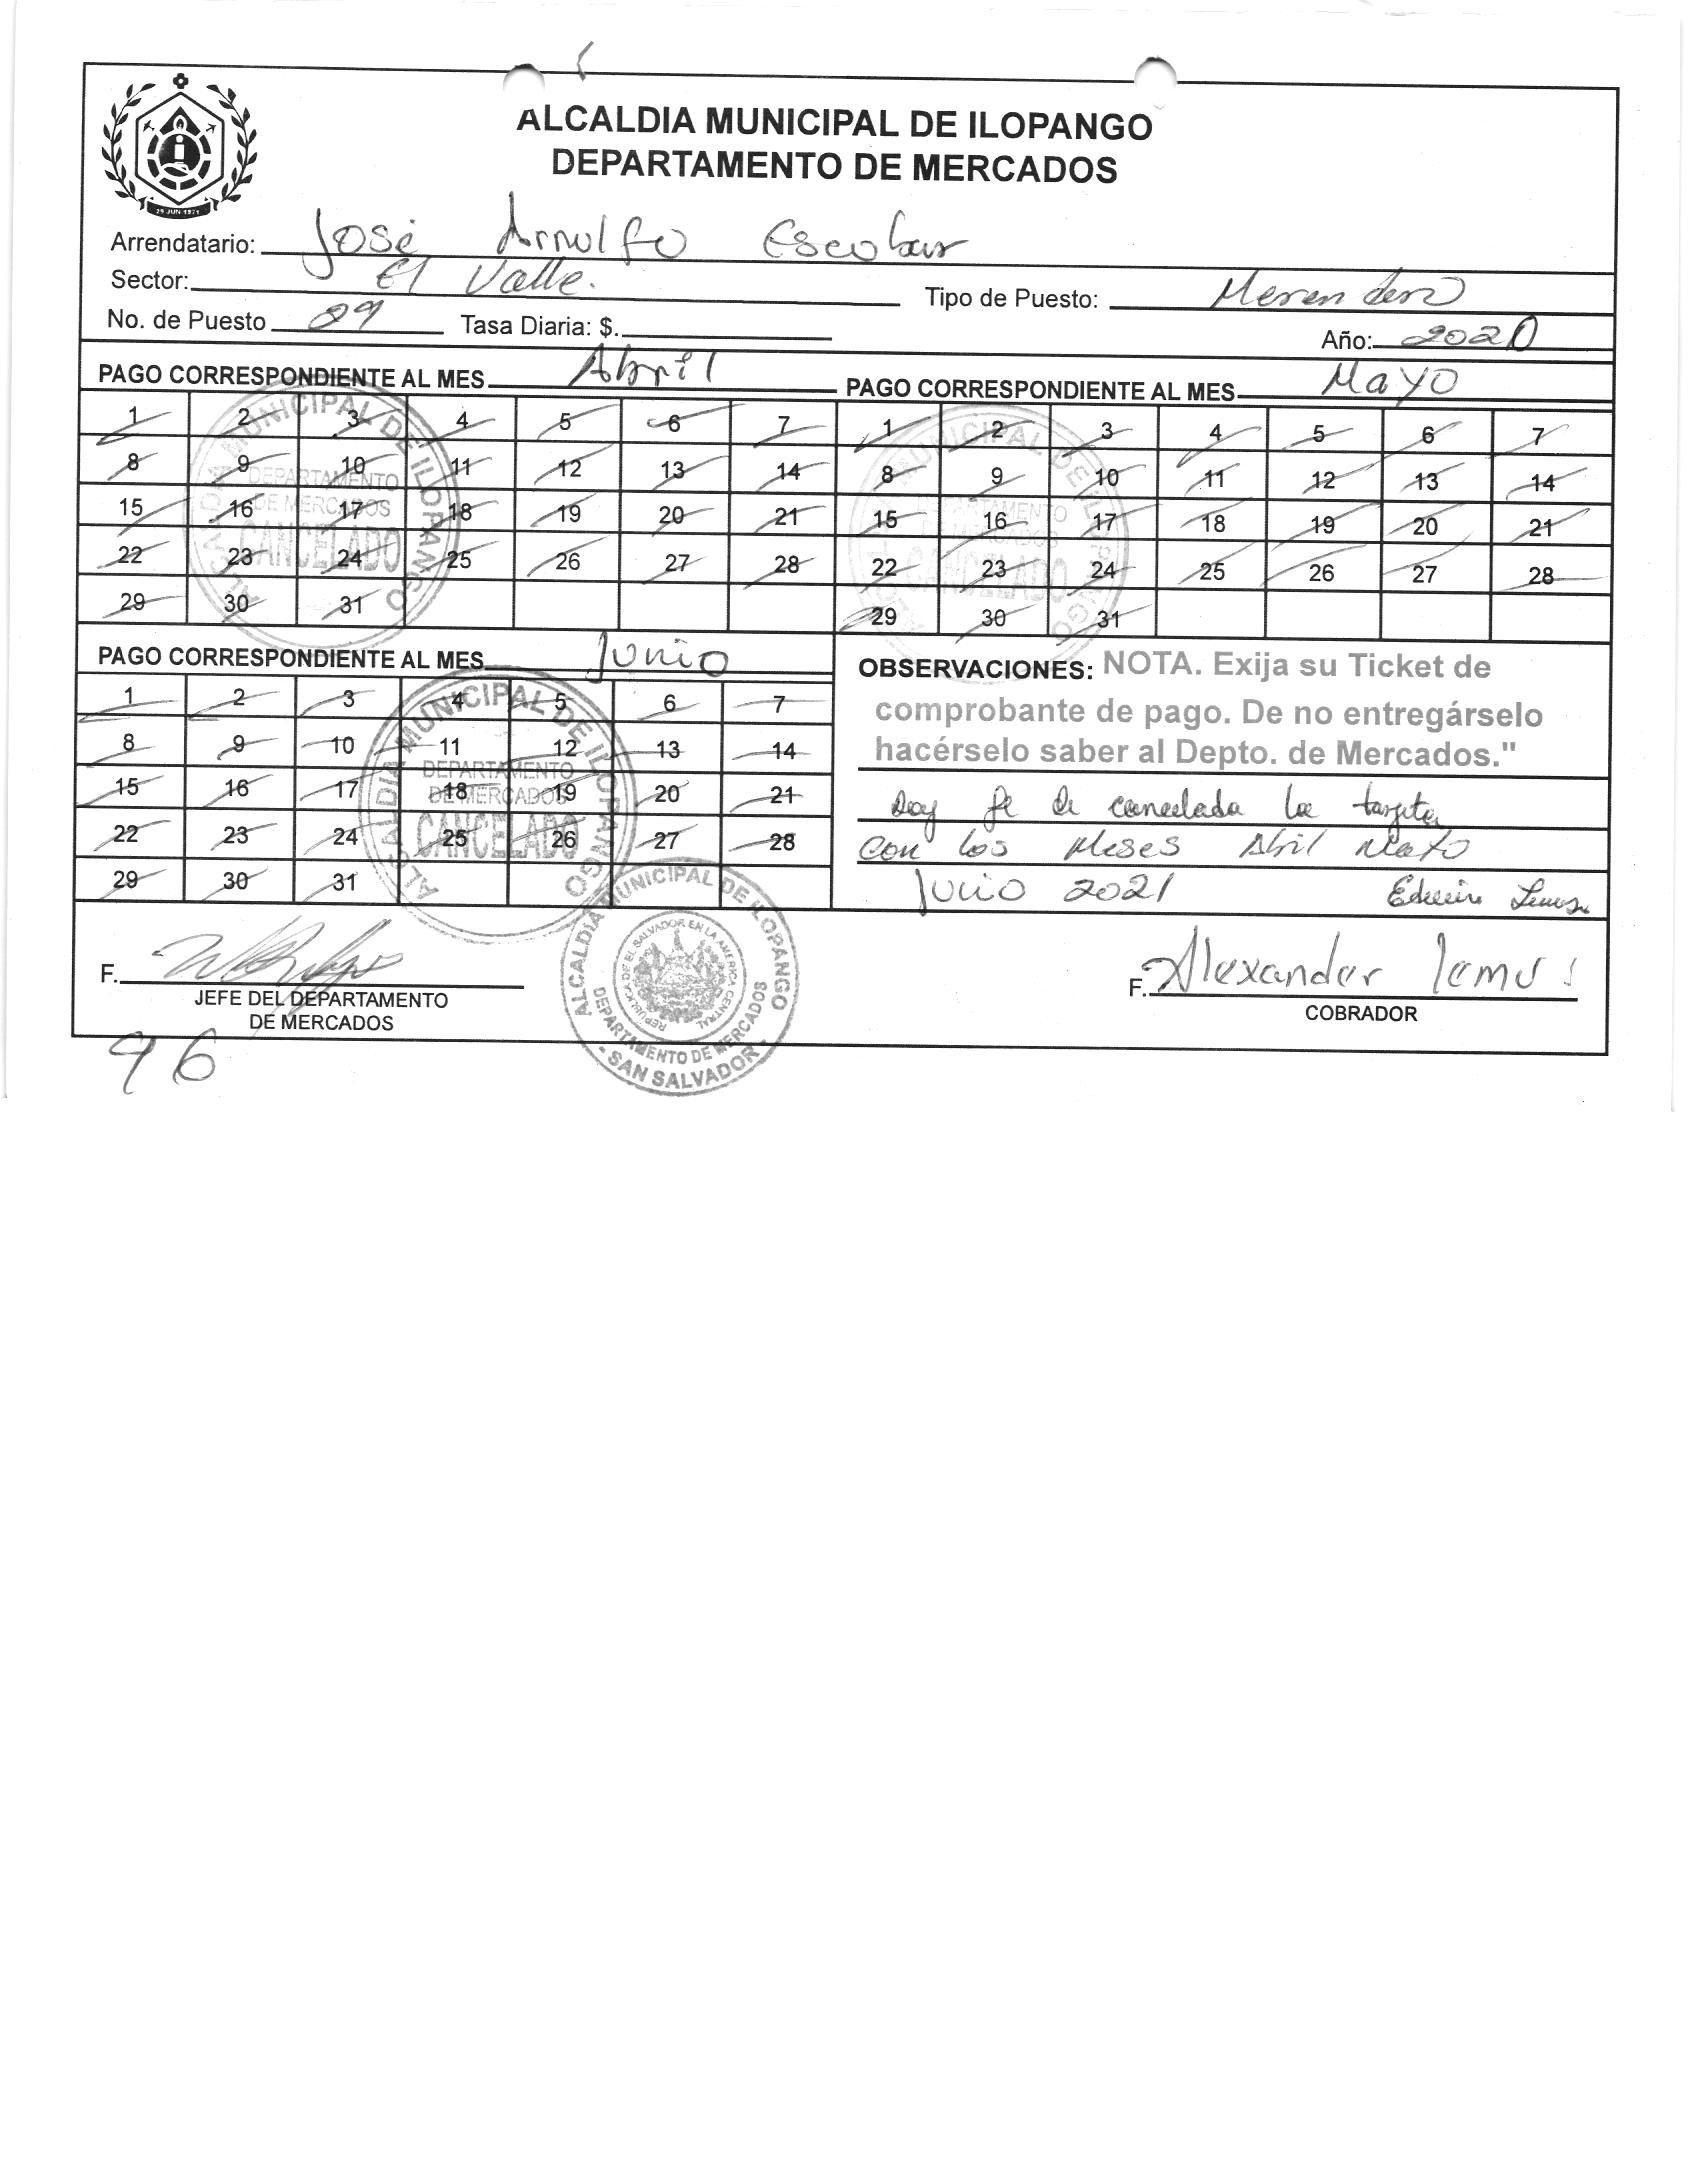 ALCALDIA MUNICIPAL DE ILOPANGO
DEPARTAMENTO DE MERCADOS
29 JUN 1971
Arrendatario: José Arnulfo Escobar
Sector: El Valle.
Tipo de Puesto: Merendero
No. de Puesto 89 Tasa Diaria: $.
Año: 2020
PAGO CORRESPONDIENTE AL MES Abril
1 2 3 4 5 6 7
8 9 10 11 12 13 14
15 16 17 18 19 20 21
22 23 24 25 26 27 28
29 30 31
ALCALDIA MUNICIPAL DE ILOPANGO
DEPARTAMENTO
DE MERCADOS
CANCELADO
PAGO CORRESPONDIENTE AL MES Mayo
1 2 3 4 5 6 7
8 9 10 11 12 13 14
15 16 17 18 19 20 21
22 23 24 25 26 27 28
29 30 31
ALCALDIA MUNICIPAL DE ILOPANGO
DEPARTAMENTO
DE MERCADOS
CANCELADO
PAGO CORRESPONDIENTE AL MES Junio
1 2 3 4 5 6 7
8 9 10 11 12 13 14
15 16 17 18 19 20 21
22 23 24 25 26 27 28
29 30 31
ALCALDIA MUNICIPAL DE ILOPANGO
DEPARTAMENTO
DE MERCADOS
CANCELADO
OBSERVACIONES: NOTA. Exija su Ticket de
comprobante de pago. De no entregárselo
hacérselo saber al Depto. de Mercados."
Doy fe de cancelada la tarjeta
con los Meses Abril Mayo
Junio 2021 Edwin Lemus
F.
JEFE DEL DEPARTAMENTO
DE MERCADOS
ALCALDIA MUNICIPAL DE ILOPANGO
REPUBLICA DE EL SALVADOR EN LA AMERICA CENTRAL
DEPARTAMENTO DE MERCADOS
- SAN SALVADOR -
F. Alexander Lemus
COBRADOR
96